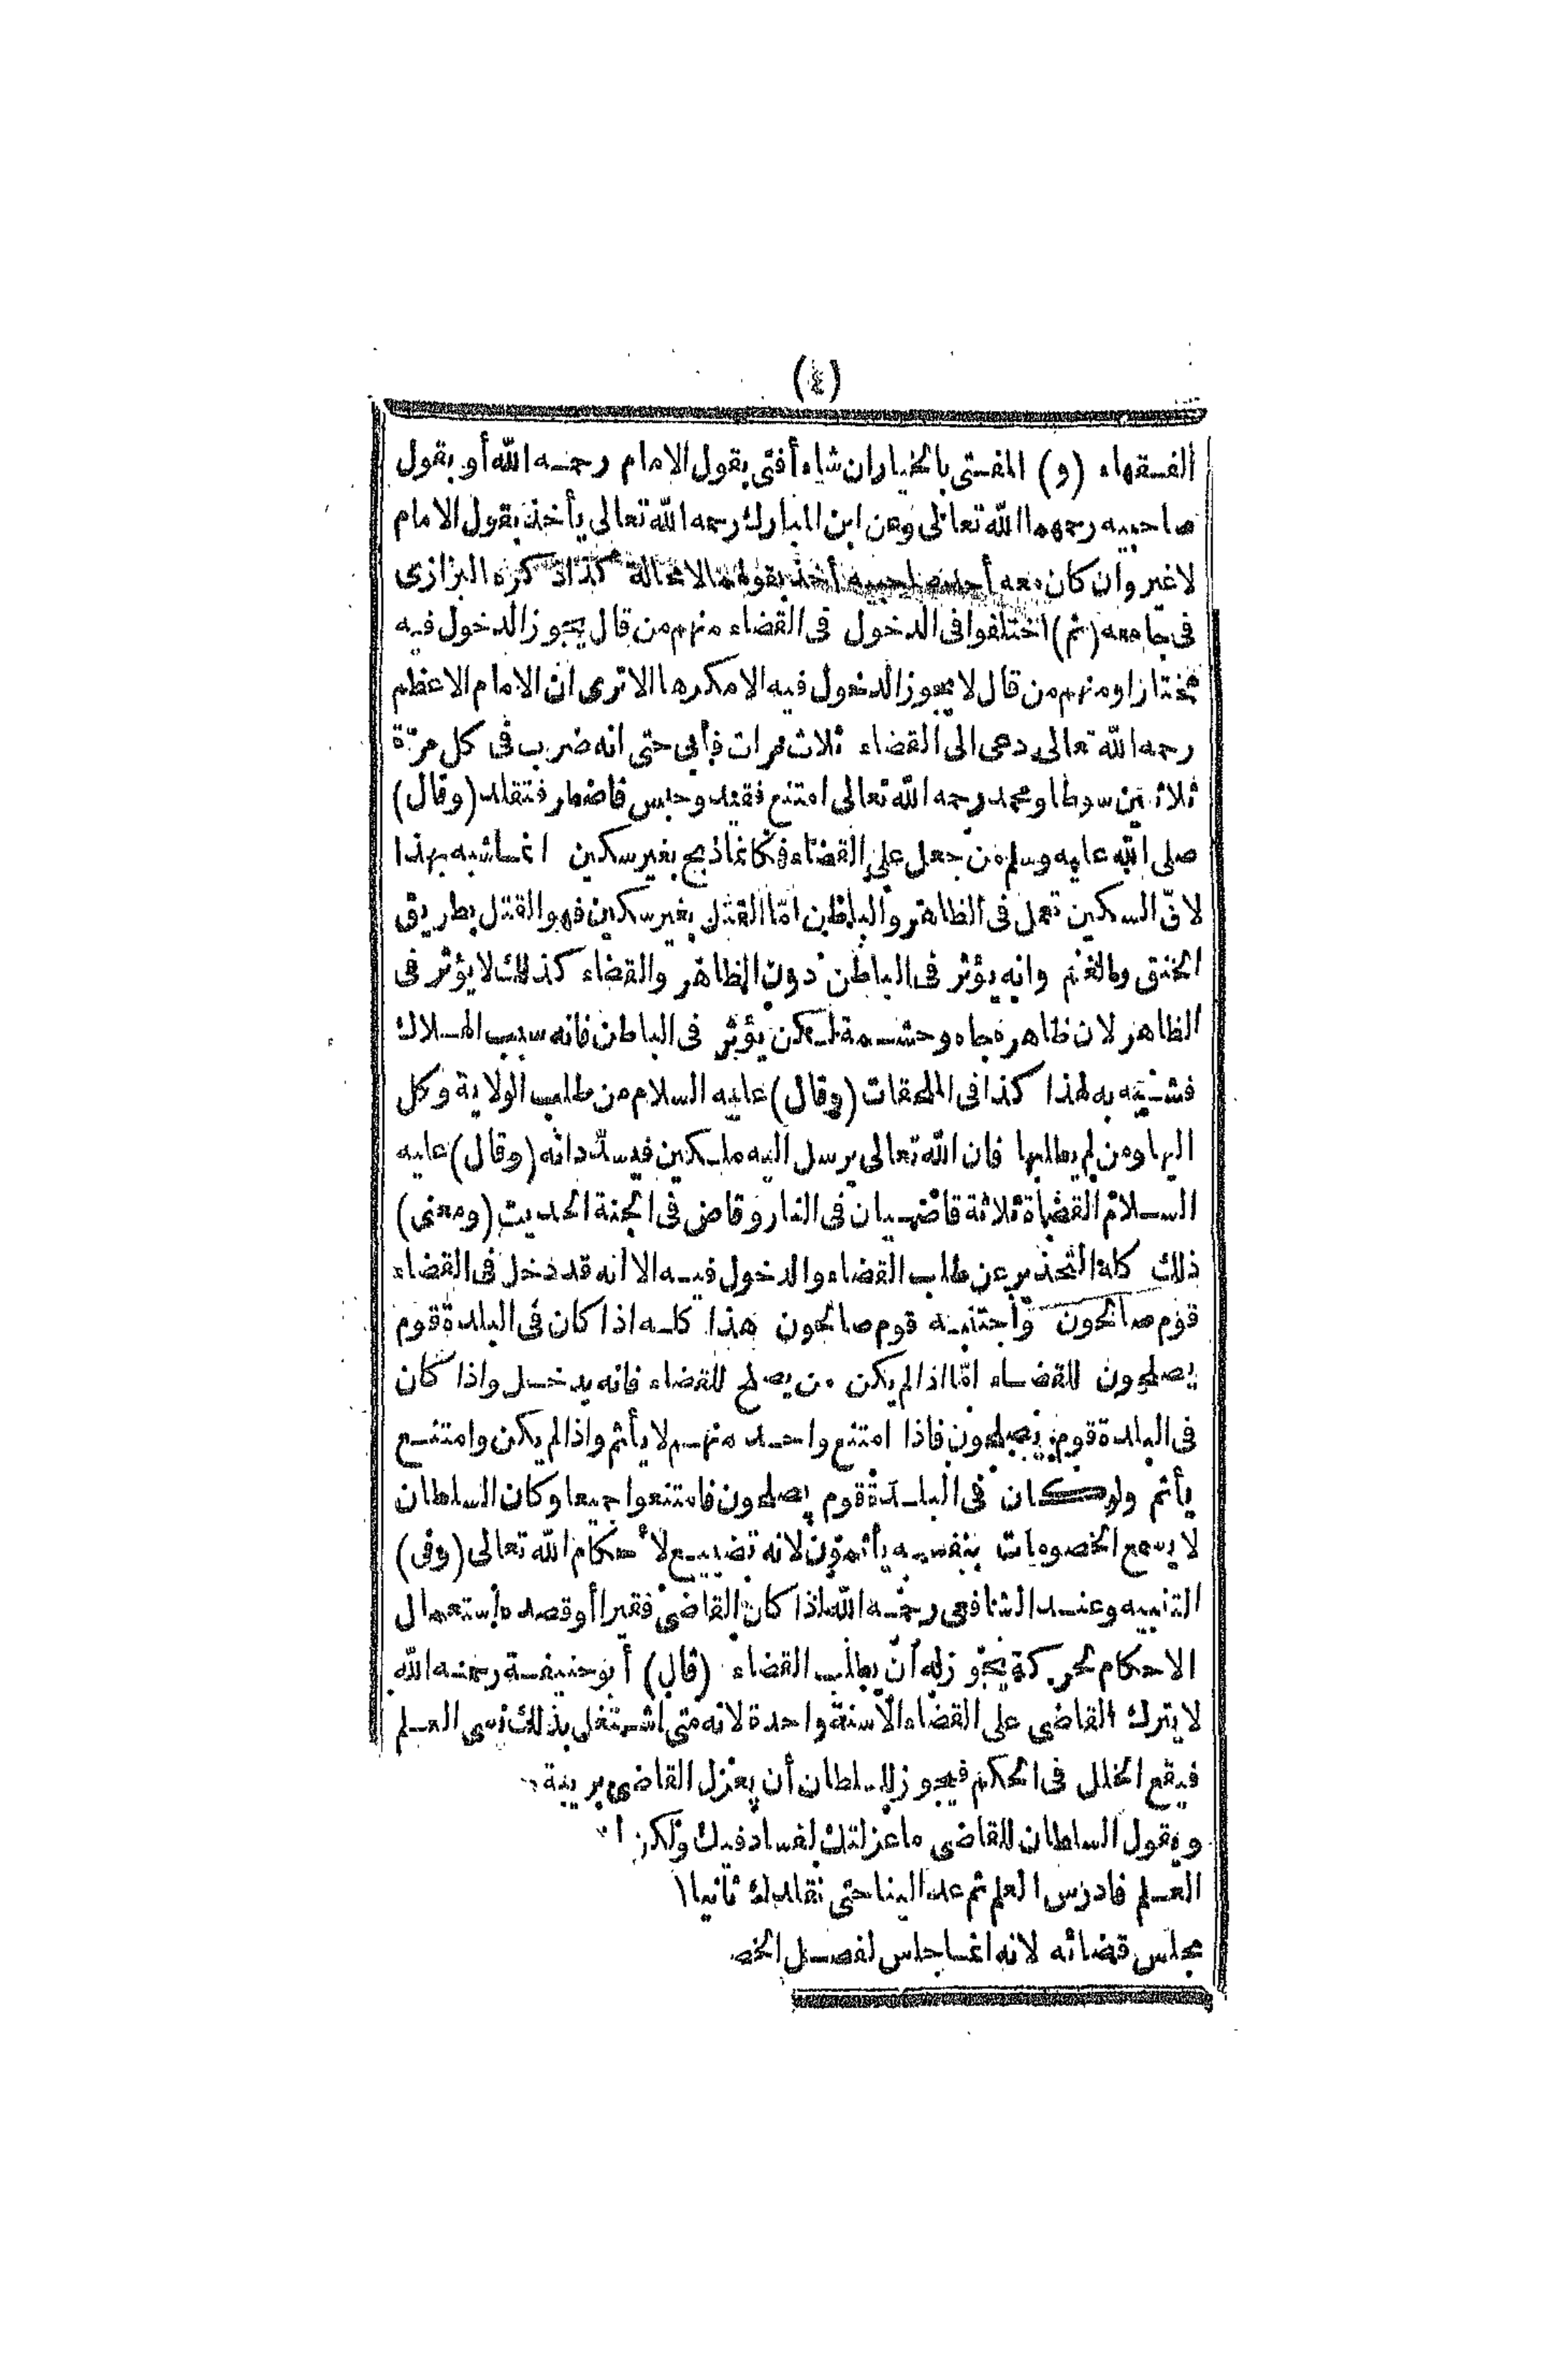 (٤)
الفقهاء (و) المفتى بالخيار ان شاء أفتى بقول الامام رحمه الله أو بقول
صاحبيه رحمهما الله تعالى وعن ابن المبارك رحمه الله تعالى يأخذ بقول الامام
لا غير وان كان معه أحد صاحبيه أخذ بقولهما لا محالة كذا ذكره البزازى
فى جامعه (ثم) اختلفوا فى الدخول فى القضاء منهم من قال يجوز الدخول فيه
مختارا ومنهم من قال لا يجوز الدخول فيه الا مكرها الا ترى ان الامام الاعظم
رحمه الله تعالى دعى الى القضاء ثلاث مرات فأبى حتى انه ضرب فى كل مرّة
ثلاثين سوطا ومحمد رحمه الله تعالى امتنع فقيد وحبس فاضطر فتقلد (وقال)
صلى الله عليه وسلم من جعل على القضاء فكانما ذبح بغير سكين انما شبه بهذا
لانّ السكين تعمل فى الظاهر والباطن امّا القتل بغير سكين فهو القتل بطريق
الخنق والغم وانه يؤثر فى الباطن دون الظاهر والقضاء كذلك لا يؤثر فى
الظاهر لان ظاهره جاه وحشمة لكن يؤثر فى الباطن فانه سبب الهلاك
فشبه به لهذا كذا فى الملحقات (وقال) عليه السلام من طلب الولاية وكل
اليها ومن لم يطلبها فان الله تعالى يرسل اليه ملكين فيسدّدانه (وقال) عليه
السلام القضاة ثلاثة قاضيان فى النار وقاض فى الجنة الحديث (ومعنى)
ذلك كله التحذير عن طلب القضاء والدخول فيه الا انه قد دخل فى القضاء
قوم صالحون وأجتنبه قوم صالحون هذا كله اذا كان فى البلدة قوم
يصلحون للقضاء امّا اذا لم يكن من يصلح للقضاء فانه يدخل واذا كان
فى البلدة قوم يصلحون فاذا امتنع واحد منهم لا يأثم واذا لم يكن وامتنع
يأثم ولو كان فى البلدة قوم يصلحون فامتنعوا جميعا وكان السلطان
لا يسمع الخصومات بنفسه يأثمون لانه تضييع لأحكام الله تعالى (وفى)
التنبيه وعند الشافعى رحمه الله اذا كان القاضى فقيرا أو قصده باستعمال
الاحكام تحركة يجوز له أن يطلب القضاء (قال) أبو حنيفة رحمه الله
لا يترك القاضى على القضاء الا سنة واحدة لانه متى اشتغل بذلك نسى العلم
فيقع الخلل فى الحكم فيجوز للسلطان أن يعزل القاضى بريبة
ويقول السلطان للقاضى ما عزلتك لفساد فيك ولكن ا
العلم فادرس العلم ثم عد الينا حتى نقلدك ثانيا ا
مجلس قضائه لانه انما جلس لفصل الخص